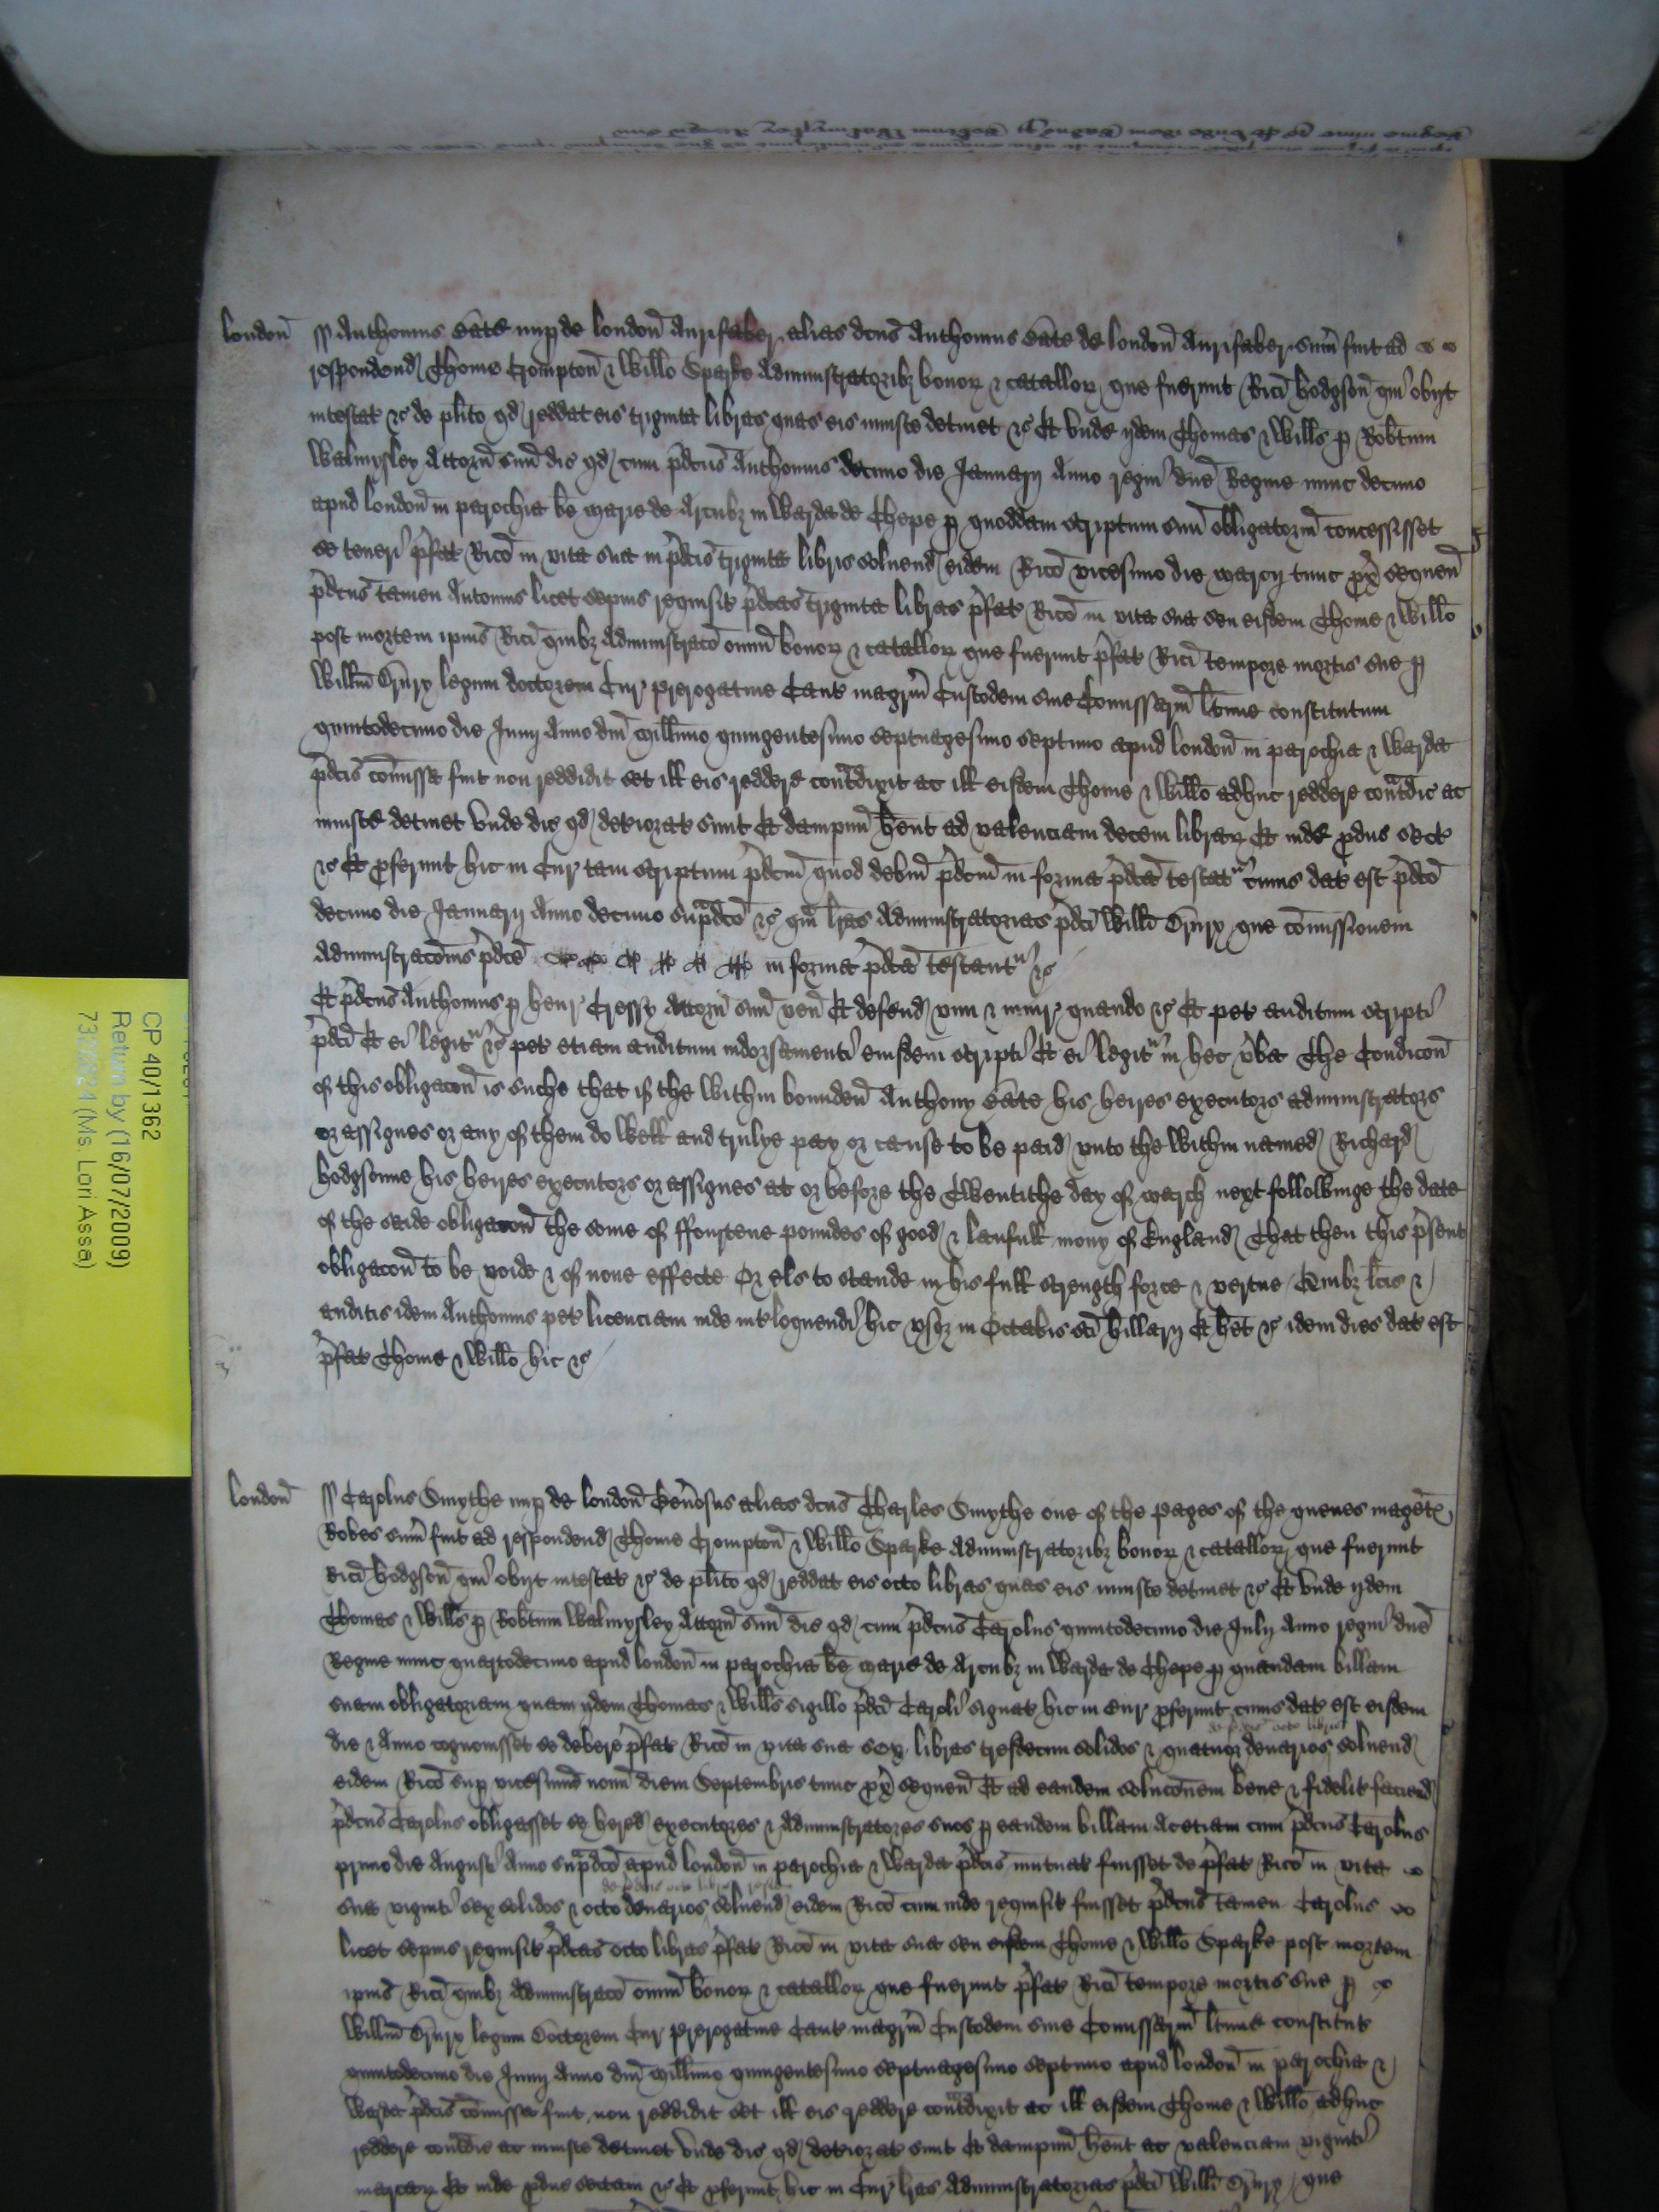 london̄ ss Anthonius Bate nup de london̄ Aurifaber alias dcūs Anthonius Bate de london̄ Aurifaber sum̄ fuit ad
respondend Thome Crompton̄ & Willō Sparke Administratoribz bonor & catallor que fuerunt Ricī hodgson̄ qui obijt
intestat &c de plīto qd reddat eis triginta libras quas eis iniuste detinet &c Et vnde ijdem Thomas & Willūs p Robtum
Walmysley Attorn̄ suū dic qd cum p̄dcūs Anthonius decimo die Januarij Anno regni dnē Regine nunc decimo
apud london̄ in parochia bē marie de Arcubz in Warda de Chepe p quoddam scriptum suū obligatoriū concessisset
se teneri p̄fat Ricō in vita sua in p̄dcīs triginta libris soluend eidem Ricō vicesimo die marcij tunc px̄ sequen̄
p̄dcūs tamen Antonius licet sepius requisit p̄dcās triginta libras p̄fat Ricō in vita sua seu eisdem Thome & Willō
post mortem ipīus Ricī quibz Administracō omniū bonor & catallor que fuerunt p̄fat Ricī tempore mortis sue p
Willm̄ Drury legum doctorem Cur prerogatiue Cant magrm̄ Custodem siue Comissariū ltīme constitutum
quintodecimo die Junij Anno dnī millīmo quingentesimo septuagesimo septimo apud london̄ in parochia & Warda
p̄dcīs comissa fuit non reddidit set ill eis reddere cont̄dixit ac ill eisdem Thome & Willō adhuc reddere cont̄dic ac
iniuste detinet vnde dic qd deteriorat sunt Et dampnū hēnt ad valenciam decem librar Et inde pduc sect
&c Et pferunt hic in Cur tam scriptum p̄dcm̄ quod debm̄ p̄dcm̄ in forma p̄dcā testat cuius dat est p̄dcō
decimo die Januarij Anno decimo sup̄dcō &c qm̄ lrās Administratorias p̄dcī Willī Drury que comissionem
Administracōnis p̄dcē in forma p̄dcā testant &c
Et p̄dcūs Anthonius p henr Cressy Attorn̄ suū ven̄ Et defend vim & iniur quando &c Et pet auditum scripti
p̄dcī Et ei legit &c pet etiam auditum indorsamenti eiusdem scripti Et ei legit in hec v̄ba The Condicon̄
of this obligacon̄ is suche that if the within bounden̄ Anthony Bate his heires executors administrators
or assignes or any of them do well and trulye pay or cause to be paid vnto the within named Richard
hodgsonne his heires executors or assignes at or before the Twentithe day of march next followinge the date
of the saide obligacon̄ the some of ffourtene poundes of good & laufull mony of England That then this p̄sent
obligacon̄ to be voide & of none effecte Or els to stande in his full strength force & vertue Quibz lcīs &
auditis idem Anthonius pet licenciam inde intloquendi hic vsqz in Octabis scī hillarij Et hēt &c idem dies dat est
p̄fat Thome & Willō hic &c
london̄ ss Carolus Smythe nup de london̄ Gen̄osus alias dcūs Charles Smythe one of the pages of the quenes magēte
Robes sum̄ fuit ad respondend Thome Crompton̄ & Willō Sparke Administratoribz bonor & catallor que fuerunt
Ricī hodgson̄ qui obijt intestat &c de plīto qd reddat eis octo libras quas eis iniuste detinet &c Et vnde ijdem
Thomas & Willūs p Robtum Walmysley Attorn̄ suū dic qd cum p̄dcūs Carolus quintodecimo die Julij Anno regni dnē
Regine nunc quartodecimo apud london̄ in parochia bē marie de Arcubz in Warda de Chepe p quandam billam
suam obligatoriam quam ijdem Thomas & Willūs sigillo p̄dcī Caroli signat hic in Cur pferunt cuius dat est eisdem
die & Anno cognouisset se debere p̄fat Ricō in vita sua sex libras tresdecim solidos & quatuor denarios soluend
eidem Ricō sup vicesimū nonū diem Septembris tunc px̄ sequen̄ Et ad eandem solucōnem bene & fidelit faciend
p̄dcūs Carolus obligasset se hered executores & Administratores suos p eandem billam Acetiam cum p̄dcūs Carolus
primo die Augusti Anno sup̄dcō apud london̄ in parochia & Warda p̄dcīs mutuat fuisset de p̄fat Ricō in vita
sua viginti sex solidos & octo denarios soluend eidem Ricō cum inde requisit fuisset p̄dcūs tamen Carolus
licet sepius requisit p̄dcās octo libras p̄fat Ricō in vita sua seu eisdem Thome & Willō Sparke post mortem
ipīus Ricī quibz Administracō omniū bonor & catallor que fuerunt p̄fat Ricī tempore mortis sue p
Willm̄ Drury legum Doctorem Cur prerogatiue Cant magrm̄ Custodem siue Comissariū ltīme constitut
quintodecimo die Junij Anno dnī millīmo quingentesimo septuagesimo septimo apud london̄ in parochia &
Warda p̄dcīs comissa fuit non reddidit set ill eis reddere cont̄dixit ac ill eisdem Thome & Willō adhuc
reddere cont̄dic ac iniuste detinet vnde dic qd deteriorat sunt Et dampnū hēnt ac valenciam viginti
marcar Et inde pduc sectam &c Et pferunt hic in Cur lrās Administratorias p̄dcī Willī Drury que
CP 40/1362
Return by (16/07/2009)
7320624 (Ms. Lori Assa)